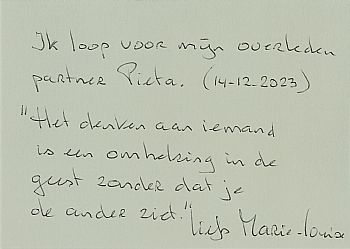 Ik loop voor mijn overleden
partner Pieta. (14-12-2023)
"Het denken aan iemand
is een omhelzing in de
geest zonder dat je
de ander ziet." liefs Marie-Louise